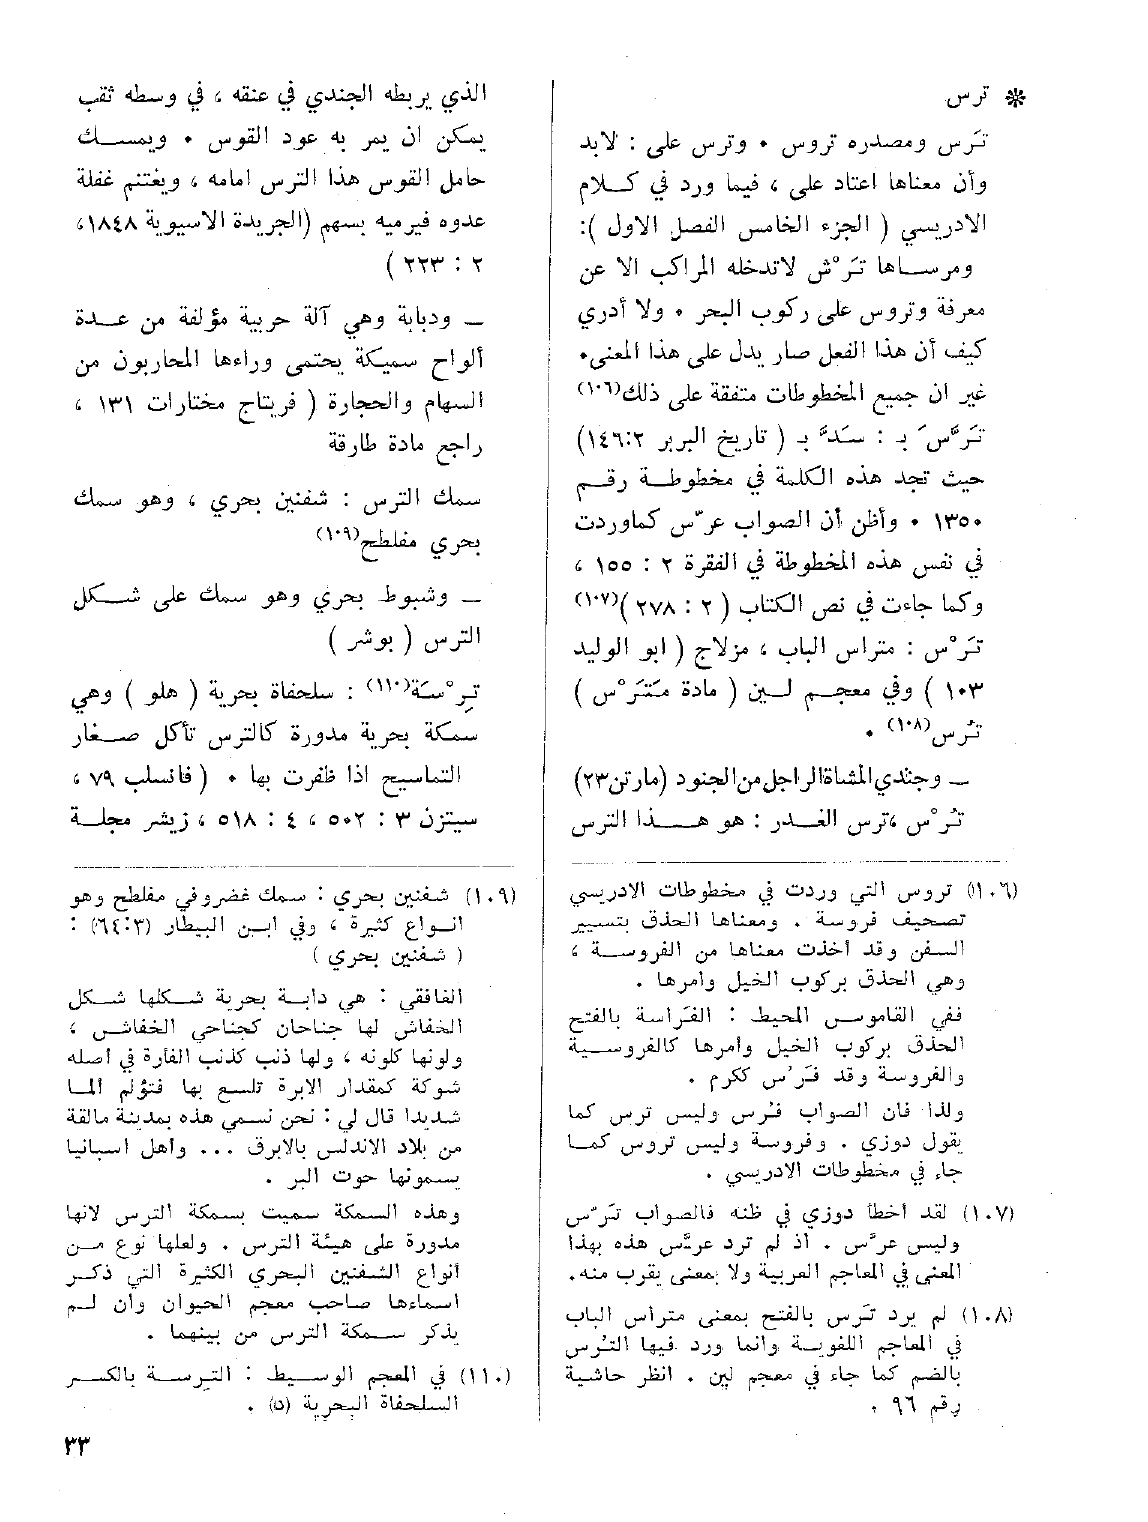 ※ ترس
تَرَس ومصدره تروس ٠ وترس على : لابد
وأن معناها اعتاد على ، فيما ورد في كلام
الادريسي ( الجزء الخامس الفصل الاول ):
ومرساها تَرْش لاتدخله المراكب الا عن
معرفة وتروس على ركوب البحر ٠ ولا أدري
كيف أن هذا الفعل صار يدل على هذا المعنى٠
غير ان جميع المخطوطات متفقة على ذلك(١٠٦)
تَرَّسَ بـ : سَدَّ بـ ( تاريخ البربر ١٤٦:٢)
حيث تجد هذه الكلمة في مخطوطة رقم
١٣٥٠ ٠ وأظن أن الصواب عرّس كماوردت
في نفس هذه المخطوطة في الفقرة ٢ : ١٥٥ ،
وكما جاءت في نص الكتاب ( ٢ : ٢٧٨ )(١٠٧)
تَرْس : متراس الباب ، مزلاج ( ابو الوليد
١٠٣ ) وفي معجم لين ( مادة مَتَرْس )
تُرس(١٠٨) ٠
ــ وجندي المشاة الراجل من الجنود (مارتن ٢٣)
تُرْس ،ترس الغدر : هو هذا الترس
الذي يربطه الجندي في عنقه ، في وسطه ثقب
يمكن ان يمر به عود القوس ٠ ويمسك
حامل القوس هذا الترس امامه ، ويغتنم غفلة
عدوه فيرميه بسهم (الجريدة الاسيوية ١٨٤٨،
٢ : ٢٢٣ )
ــ ودبابة وهي آلة حربية مؤلفة من عدة
ألواح سميكة يحتمى وراءها المحاربون من
السهام والحجارة ( فريتاج مختارات ١٣١ ،
راجع مادة طارقة
سمك الترس : شفنين بحري ، وهو سمك
بحري مفلطح(١٠٩)
ــ وشبوط بحري وهو سمك على شكل
الترس ( بوشر )
تِرْسَة(١١٠) : سلحفاة بحرية ( هلو ) وهي
سمكة بحرية مدورة كالترس تأكل صغار
التماسيح اذا ظفرت بها ٠ ( فانسلب ٧٩ ،
سيتزن ٣ : ٥٠٢ ، ٤ : ٥١٨ ، زيشر مجلة
(١٠٦) تروس التي وردت في مخطوطات الادريسي
تصحيف فروسة . ومعناها الحذق بتسيير
السفن وقد أخذت معناها من الفروسة ،
وهي الحذق بركوب الخيل وأمرها .
ففي القاموس المحيط : الفَراسة بالفتح
الحذق بركوب الخيل وأمرها كالفروسية
والفروسة وقد فَرُس ككرم .
ولذا فان الصواب فَرُس وليس ترس كما
يقول دوزي . وفروسة وليس تروس كما
جاء في مخطوطات الادريسي .
(١٠٧) لقد أخطأ دوزي في ظنه فالصواب تَرَّس
وليس عرّس . اذ لم ترد عرَّس هذه بهذا
المعنى في المعاجم العربية ولا بمعنى يقرب منه.
(١٠٨) لم يرد تَرس بالفتح بمعنى متراس الباب
في المعاجم اللغوية وانما ورد فيها التُرس
بالضم كما جاء في معجم لين . انظر حاشية
رقم ٩٦ .
(١٠٩) شفنين بحري : سمك غضروفي مفلطح وهو
انواع كثيرة ، وفي ابن البيطار (٦٤:٣) :
( شفنين بحري )
الغافقي : هي دابة بحرية شكلها شكل
الخفاش لها جناحان كجناحي الخفاش ،
ولونها كلونه ، ولها ذنب كذنب الفارة في اصله
شوكة كمقدار الابرة تلسع بها فتؤلم الما
شديدا قال لي : نحن نسمي هذه بمدينة مالقة
من بلاد الاندلس بالابرق ... وأهل اسبانيا
يسمونها حوت البر .
وهذه السمكة سميت بسمكة الترس لانها
مدورة على هيئة الترس . ولعلها نوع من
أنواع الشفنين البحري الكثيرة التي ذكر
اسماءها صاحب معجم الحيوان وان لم
يذكر سمكة الترس من بينهما .
(١١٠) في المعجم الوسيط : التِرسة بالكسر
السلحفاة البحرية (د) .
٣٣